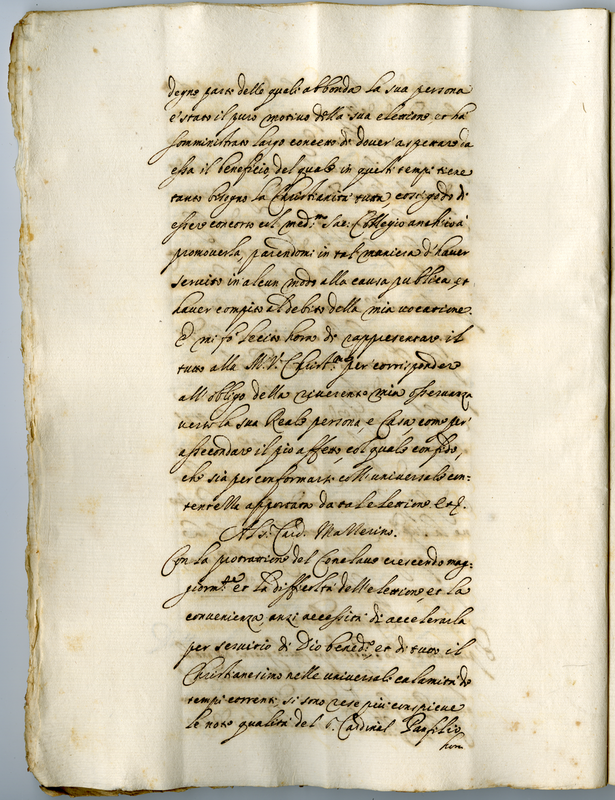 degne parte delle quali abbonda la sua persona
è stato il puro motivo della sua elettione et hà
somministrato largo concetto di dover aspettare da
essa il beneficio del quale in questi tempi tiene
tanto bisogno la Christianità tutta, così godo di
esser concorso col med.mo Sac. Collegio anch'io à
promoverla parendomi in tal maniera d'haver
servito in alcun modo alla causa publica, et
haver compito al debito della mia vocatione.
E mi fò lecito hora di rappresentare il
tutto alla M. V. Christ.ma per corrisponder
all'obligo della riverente mia osservanza
verso la sua Reale persona, e Casa, come per
assecondare il pio affetto, col quale confido,
che sia per conformarsi coll'universale con-
tentezza apportata da tale elettione &c.
Al S. Card. Mazzerino.
Con la protrattione del Conclave crescendo mag-
giorm.te et la difficoltà dell'elettione, et la
convenienza, anzi necessità di accelerarla
per servitio di Dio bened.o et di tutto il
Christianesimo nelle universali calamità de
tempi correnti, si sono rese più conspicue
le note qualità del S. Cardinal Panfilio
hora